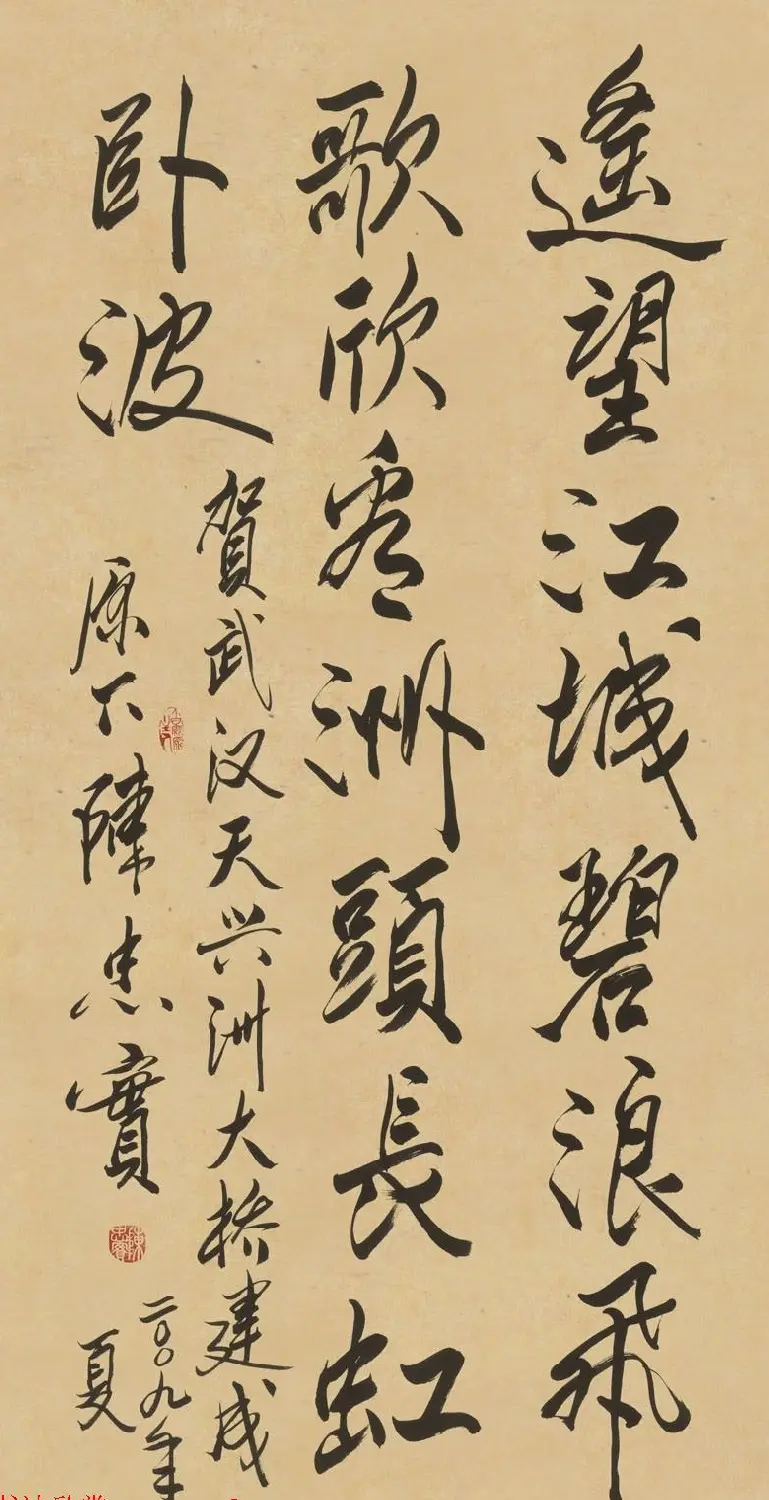 遙望江城碧浪飛
歌欣看洲頭長虹
卧波
賀武汉天兴洲大桥建成
二〇〇九年
夏
原下陳忠實
陳忠實